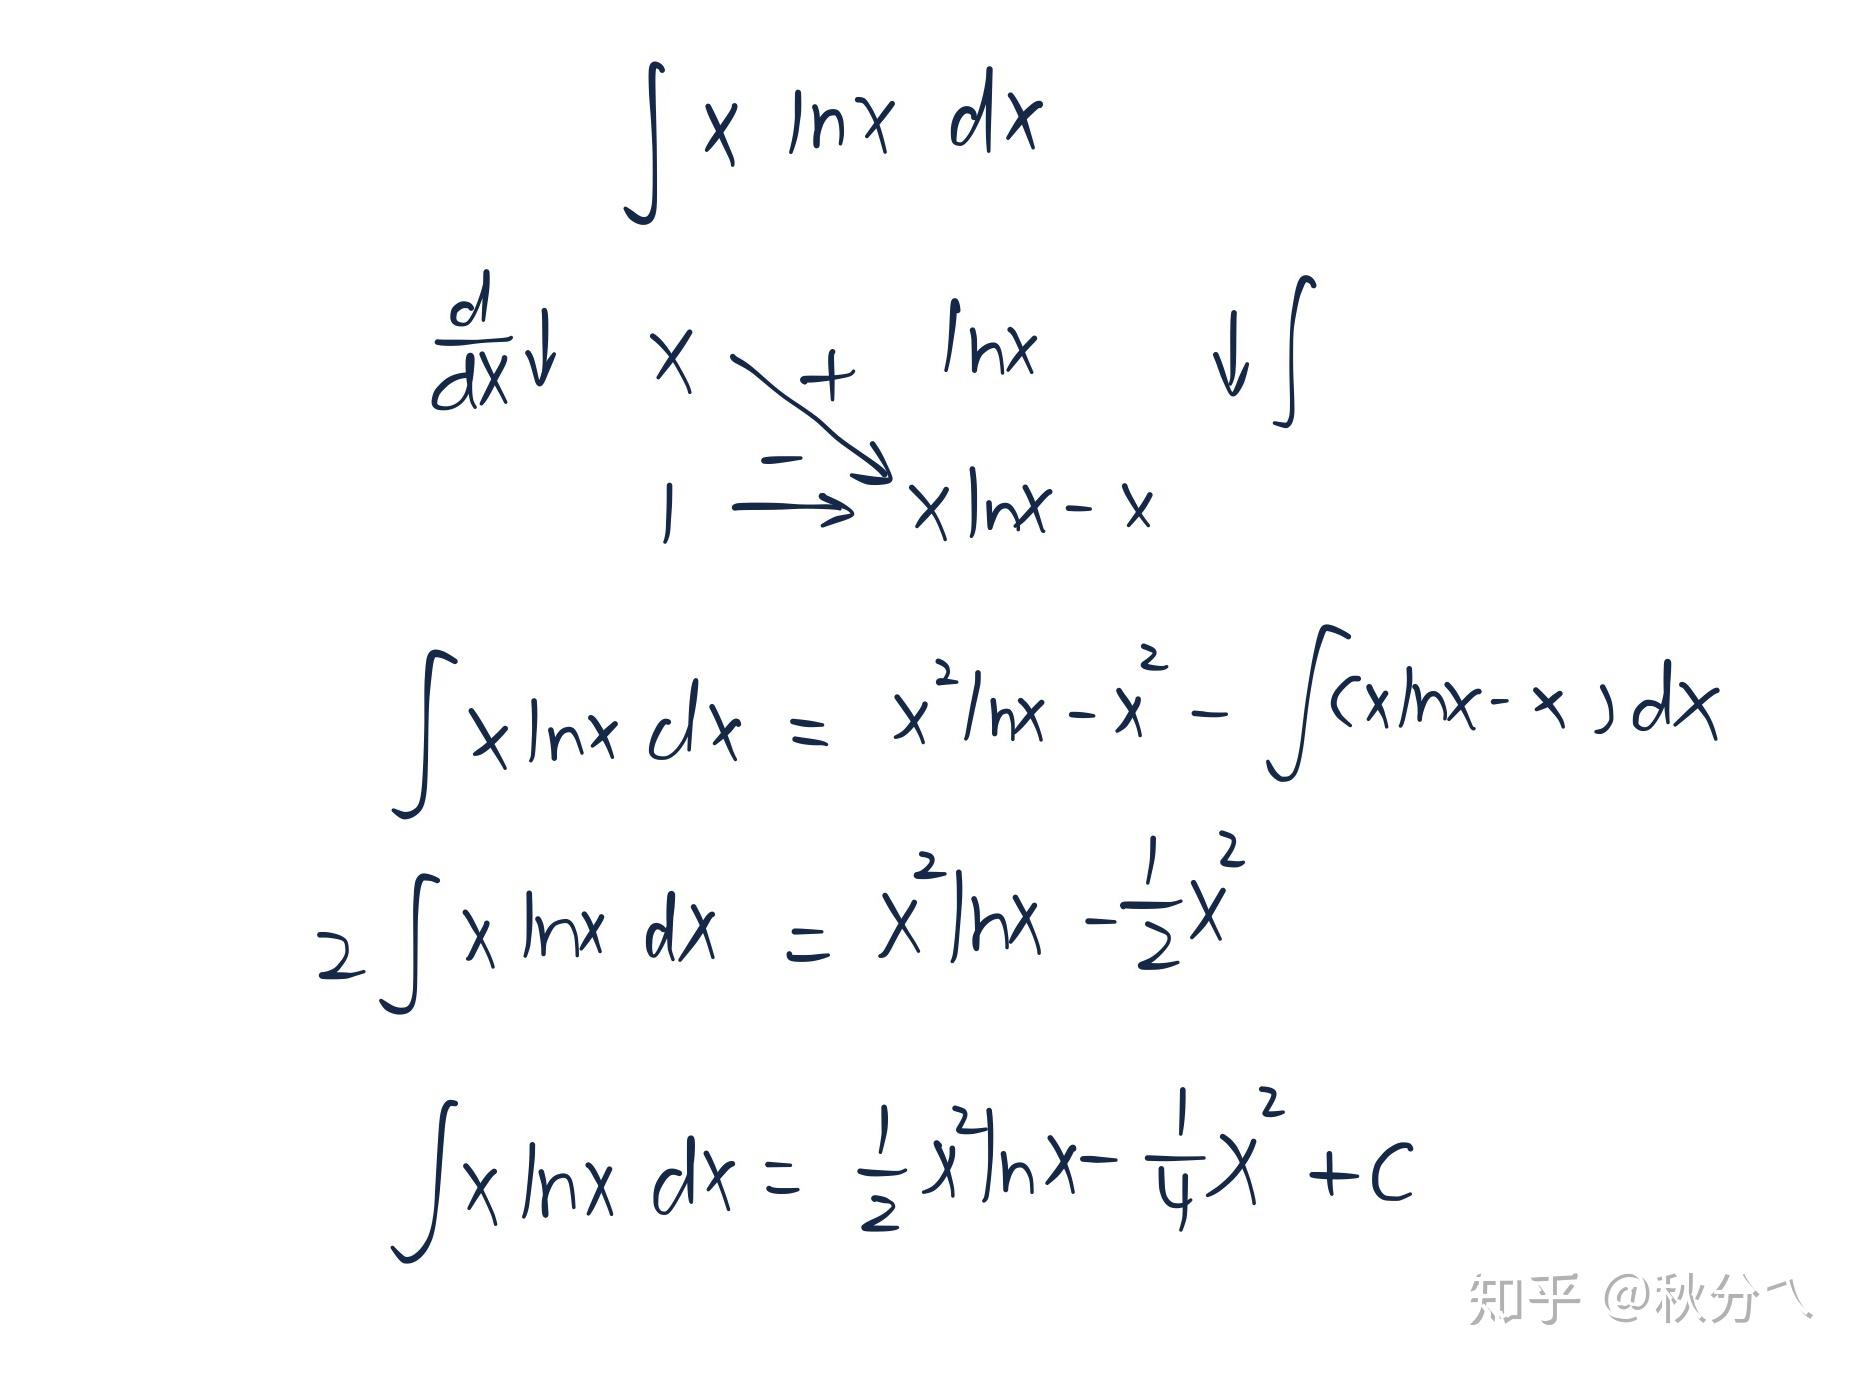 ∫ x lnx dx
d/dx ↓ x + lnx ↓ ∫
1 − → x lnx - x
∫ x lnx dx = x² lnx - x² - ∫(x lnx - x) dx
2 ∫ x lnx dx = x² lnx - 1/2 x²
∫ x lnx dx = 1/2 x² lnx - 1/4 x² + C
知乎 @秋分八